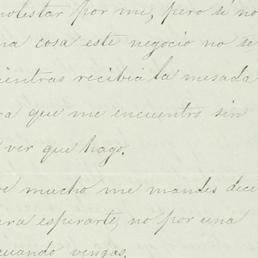 molestar por me, pero si no
na cosa este negocio no se
mientras recibia la mesada
ra que me encuentro sin
ver que hago.
mucho me mandes deci
ara esperarte, no por una
cuando vengas.